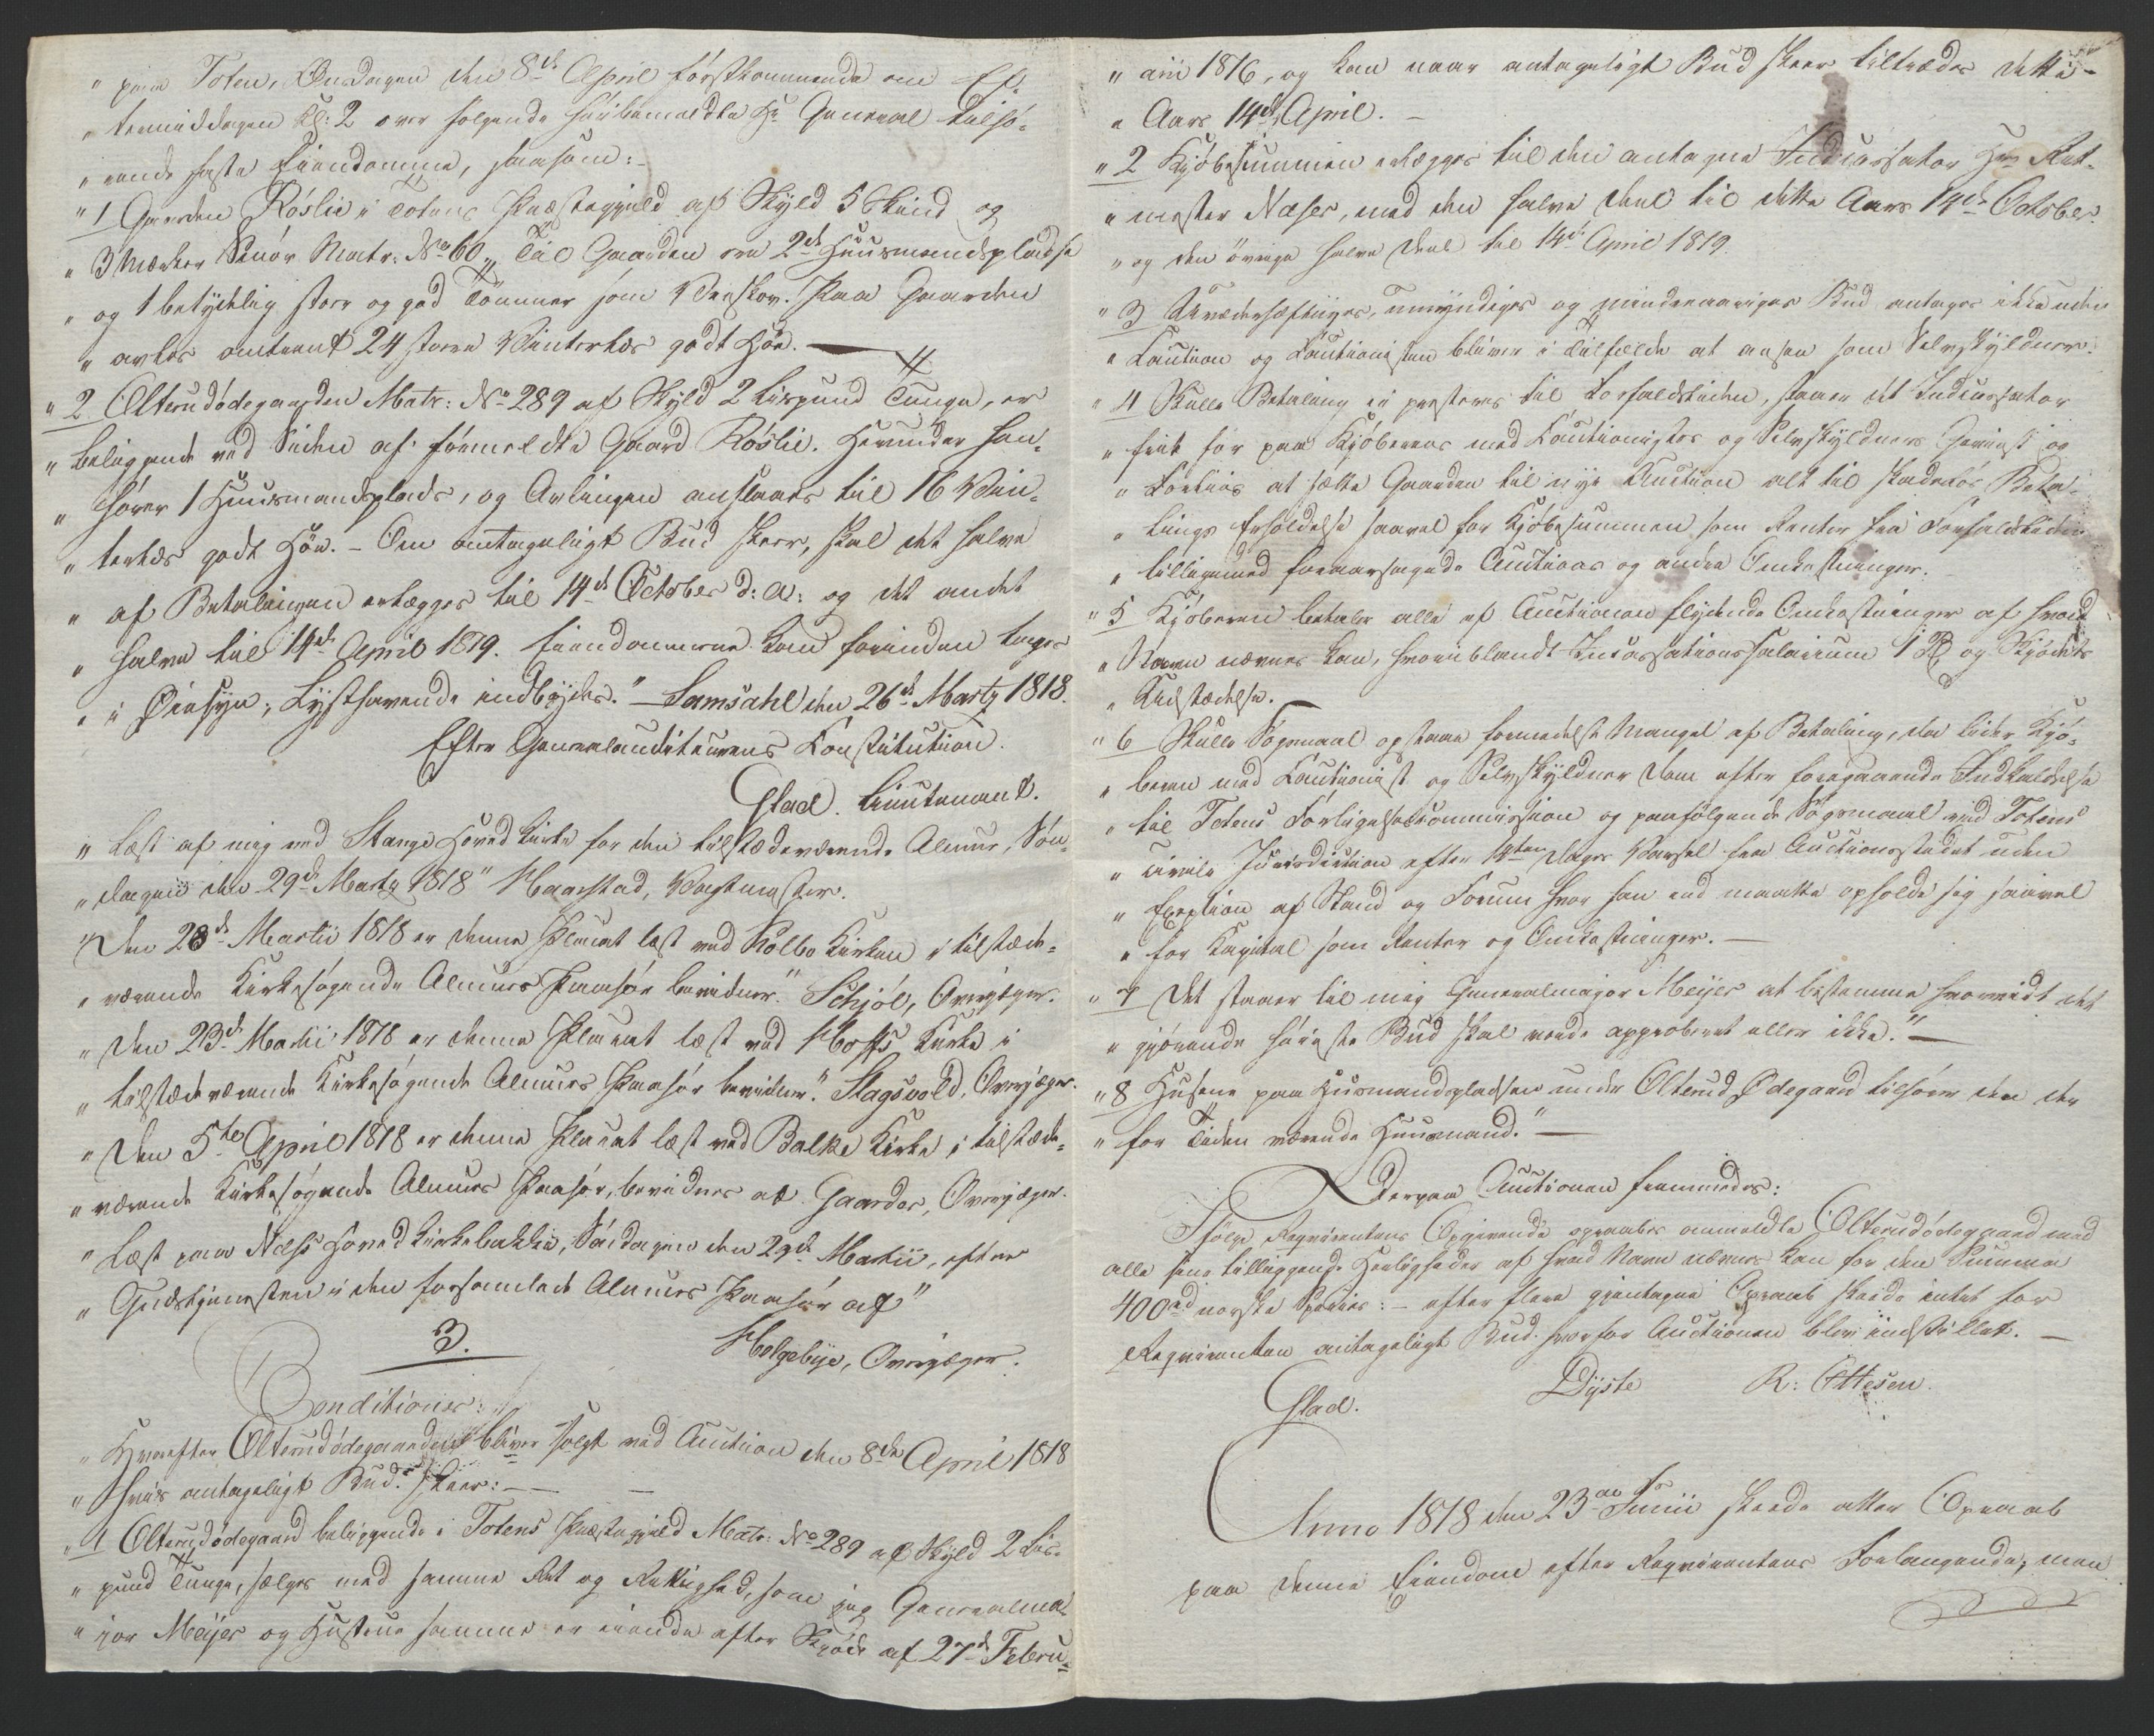 " paa Toten, Onsdagen den 8de April förstkommende om Ef¬
" termiddagen Kl: 2 over følgende høibemeldte Hr General tilhø¬
" rende faste Eiendomme, saasom:-
" 1 Gaarden Röslie i Totens Præstegjæld af Skyld 5 Skind og
" 3 Mærker Smör Matr: No 60 " Til Gaarden ere 2de Huusmandspladse
" og 1 betydelig stor og god Tömmer som Veeskov. Paa Gaarden
" avles omtrent 24 store Vinterlæs godt Höe. —
" 2 Olterudödegaarden Matr: No 289 af Skyld 2 Lispund Tunge, er
" beliggende ved Siden af förmeldte Gaard Röslie. Herunder hen¬
" hörer 1 Huusmandsplads, og Avlingen anslaaes til 16 Vin¬
" terlæs godt Höe. - Om antageligt Bud skeer, skal det halve
" af Betalingen erlægges til 14de October d: A: og det andet
" halve til 14de April 1819. Eiendommene kan forinden tages
" i Øiesyn; Lysthavende indbydes." - Samsahl den 26de Marty 1818.
Efter Generalauditeurens Constitution.
Glad. Lieutenant.
" Læst af mig ved Stange Hoved Kirke for den tilstedeværende Almue, Søn¬
" dagen den 29de Marty 1818" Haarstad, Vagtmester.
"Den 23de Martii 1818 er denne Placat læst ved Kolbo Kirken i tilstæde¬
" værende Kirkesøgende Almues Paahör bevidner." Schjöl, Overjæger.
" Den 23de Martii 1818 er denne Placat læst ved Hoffs Kirke i
" tilstædeværende Kirkesøgende Almues Paahör bevidner." Slagsvold, Overjæger.
" Den 5te April 1818 er denne Placat læst ved Balke Kirke, i tilstæde¬
" værende Kirkesøgende Almues Paahör, bevidnes af Gaarder, Overjæger.
" Læst paa Næss Hoved Kirkebakke, Söndagen den 29de Martii, efter
" Gudstjenesten i den forsamlede Almues Paahör af"
3.
Helgebye, Overjæger.
Conditioner:
" Hvorefter Olterudödegaarden bliver solgt ved Auction den 8de April 1818
" hvis antageligt Bud skeer: - -
" 1 Olterudödegaard beliggende i Totens Præstegjæld Matr: No 289 af Skyld 2 Lis¬
" pund Tunge, sælges med samme Ret og Rettighed, som jeg Generalma¬
" jor Meijer og Hustrue samme er eiende efter Skjöde af 27de Febru¬
" arii 1816, og kan naar antageligt Bud skeer tiltrædes dette
" Aars 14de April. -
" 2 Kjöbesummen erlægges til den antagne Incassator Hr Rit¬
" mester Næser, med den halve Deel til dette Aars 14de October
" og den övrige halve Deel til 14de April 1819.
" 3 Uvederhæftiges, umyndiges og mindreaariges Bud antages ikke uden
" Caution og Cautionisten bliver i Tilfælde at ansee som Selvskyldner.
" 4 Skulle Betaling ei præsteres til Forfaldstiden, staaer det Incassator
" frit for paa Kjöberens med Cautionistes og Selvskyldners Gevinst og
" Forliis at sætte Gaarden til nye Auction alt til skadeslös Beta¬
" lings Erholdelse saavel for Kjöbesummen som Renter fra Forfaldstiden
" tilligemed foraarsagede Auctions og andre Omkostninger.
" 5 Kjöberen betaler alle af Auctionen flydende Omkostninger af hvad
" Navn nævnes kan, hvoriblandt Incassationssalairium og Skjödets
" Udstædelse.
" 6 Skulle Sögsmaal opstaae formedelst Mangel af Betaling, da lider Kjö¬
" beren med Cautionist og Selvskyldner Dom efter foregaaende Indkaldelse
" til Totens Forligelsescommission og paafölgende Sögsmaal ved Totens
" civile Jurisdiction efter 14ten Dages Varsel fra Auctionsstedet uden
" Exeption af Stand og Forum hvor han end maatte opholde sig saavel
" for Kapital som Renter og Omkostninger. -
" 7 Det staaer til mig Generalmajor Meijer at bestemme hvorvidt det
" gjörende höieste Bud skal vorde approberet eller ikke." -
" 8 Husene paa Husmandspladsen under Olterud Ödegaard tilhörer den der
" for Tiden værende Huusmand." -
Derpaa Auctionen fremmedes:
Ifölge Reqvirentens Opgivende opraabes anmeldte Olterudödegaard med
alle sine tilliggende Herligheder af hvad Navn nævnes kan for den Summa
400rd norske Species: - efter flere gjentagne Opraab skeede intet for
Reqvirenten antageligt Bud. hvorfor Auctionen blev indstillet. -
Glad.
Dyste
R: Ottesen.
Anno 1818 den 23de Junii skeede atter Opraab
paa denne Eiendom efter Reqvirentens Forlangende, men